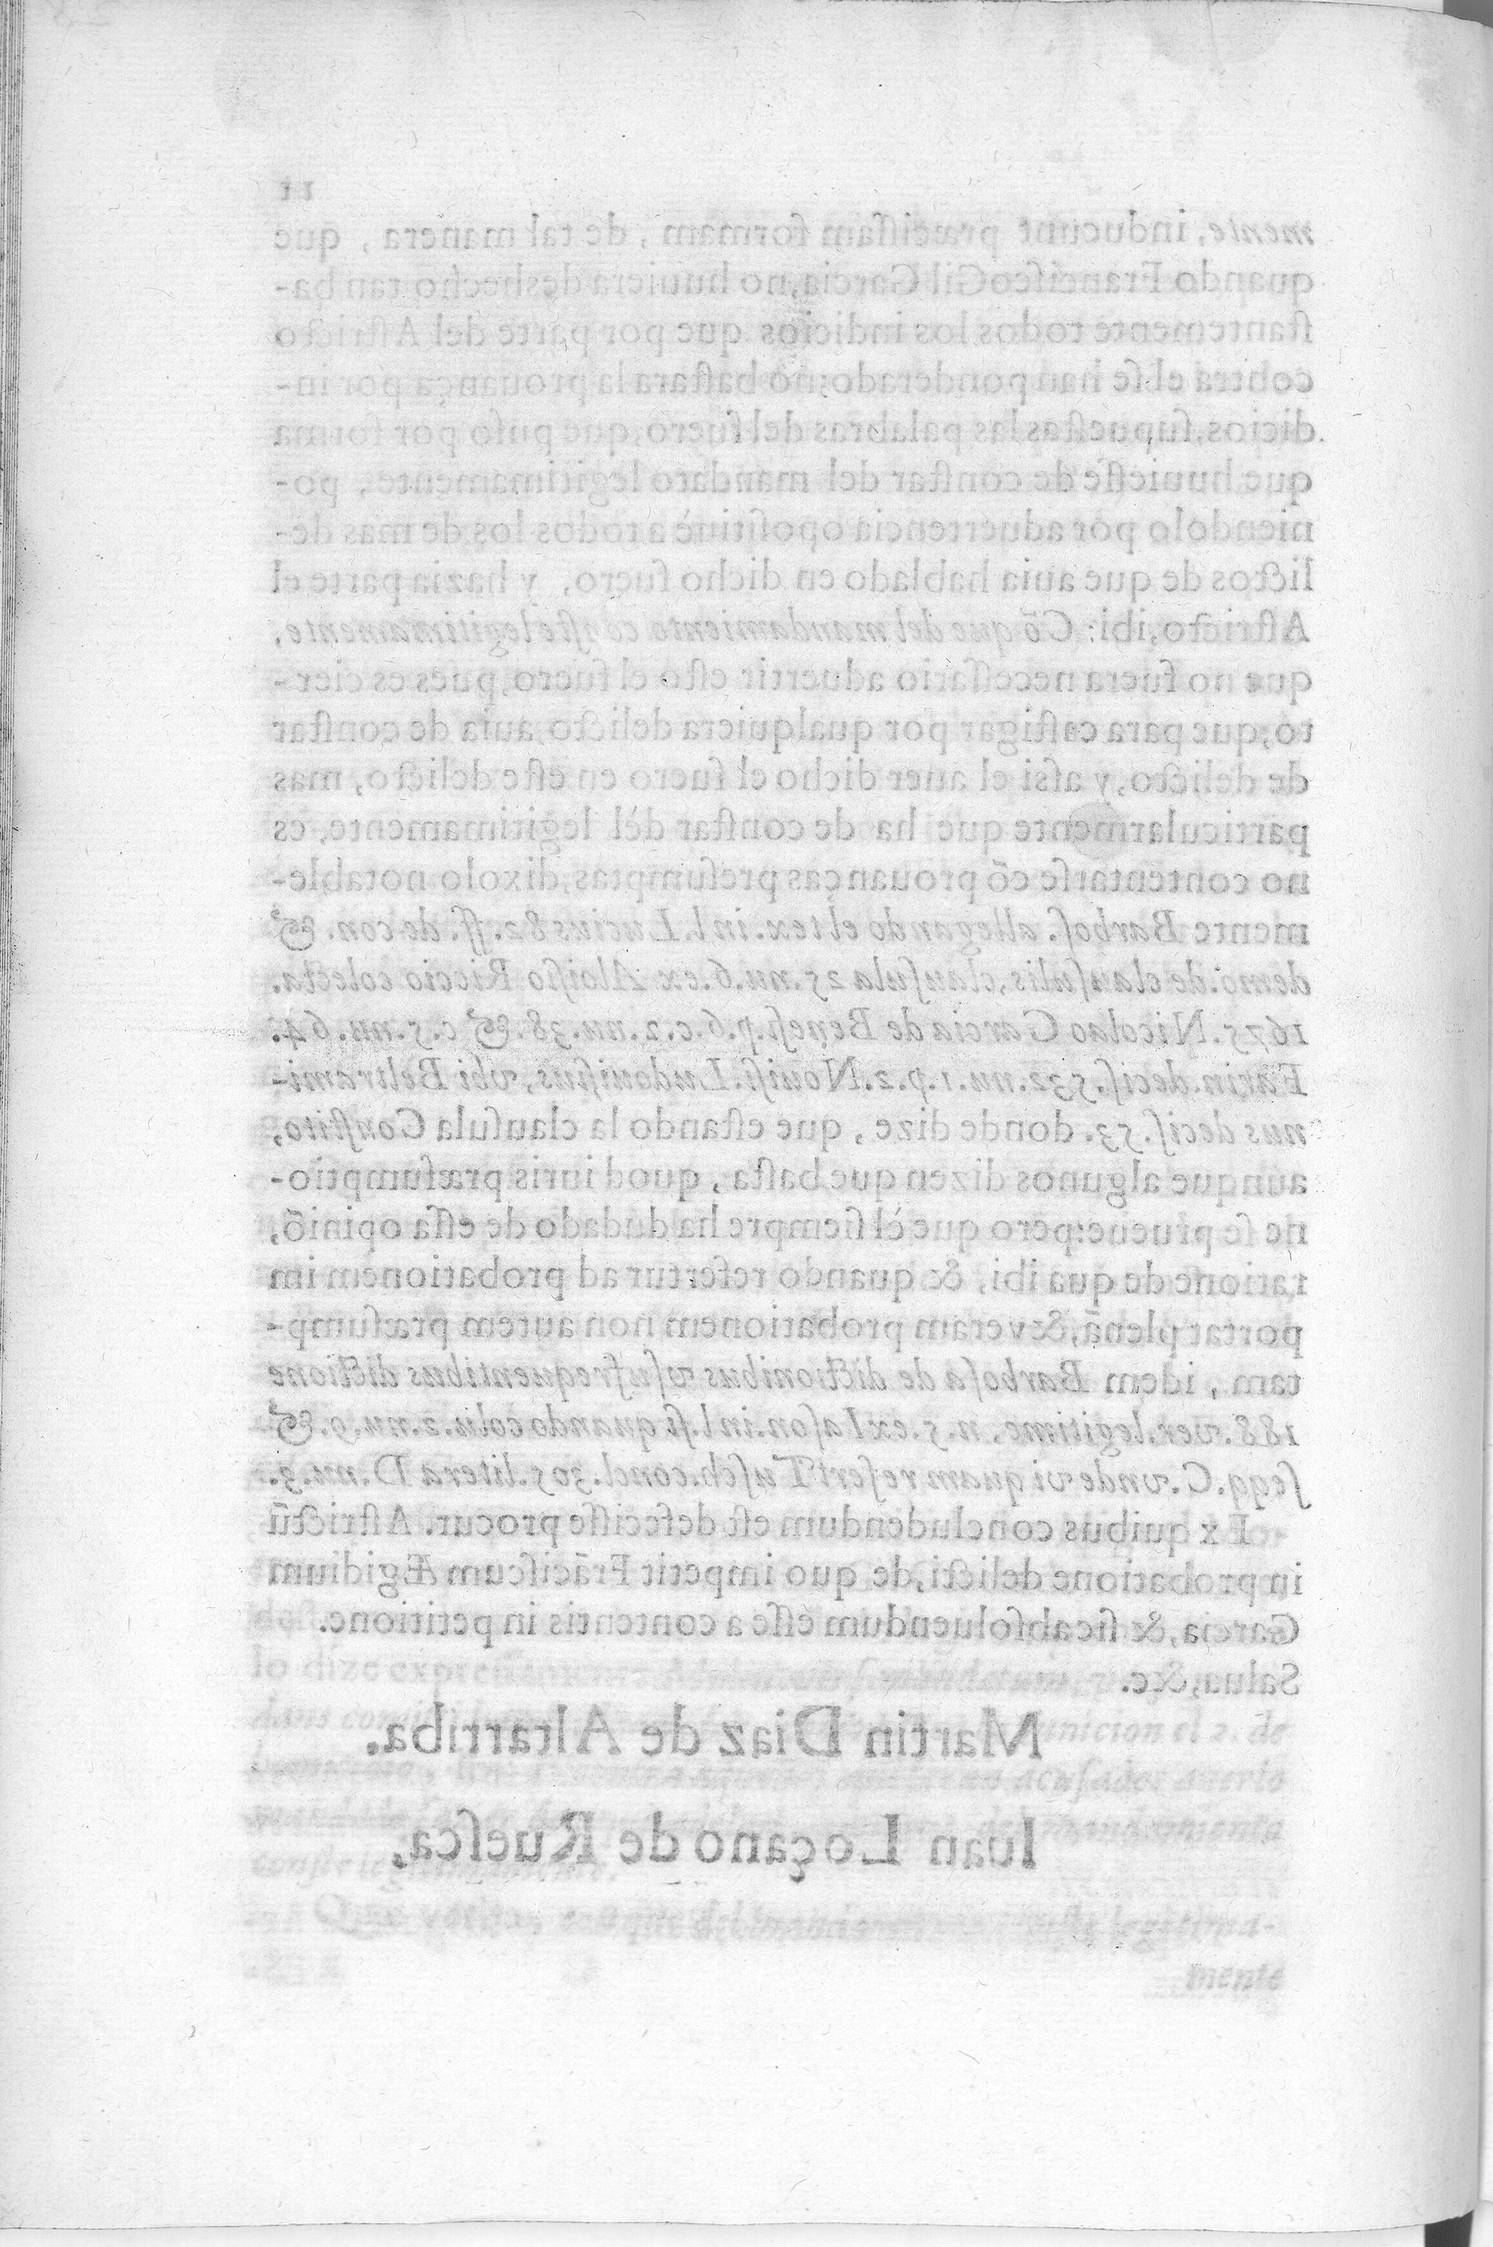 11
mente, inducunt præcissam formam, de tal manera, que
quando Francisco Gil Garcia, no huuiera deshecho tan ba-
stantemente todos los indicios que por parte del Astricto
contra el se han ponderado; no bastara la prouança por in-
dicios, supuestas las palabras del fuero, que puso por forma
que huuiesse de constar del mandato legitimamente, po-
niendolo por aduertencia opositiuè a todos los de mas de-
lictos de que auia hablado en dicho fuero, y hazia parte el
Astricto, ibi: Cō que del mandamiento conste legitimamente,
que no fuera necessario aduertir esto el fuero, pues es cier-
to, que para castigar por qualquiera delicto, auia de constar
de delicto, y assi el auer dicho el fuero en este delicto, mas
particularmente que ha de constar dèl legitimamente, es
no contentarse cō prouanças presumptas, dixolo notable-
mente Barbos. allegando el tex. in l. Lucius 82. ff. de con. &
demo: de clausulis, clausula 25. nu. 6. ex Aloisso Riccio colecta.
1675. Nicolao Garcia de Benefi. p. 6. c. 2. nu. 38. & c. 5. nu. 64.
Farin. decis. 532. nu. 1. p. 2. Nouisi. Ludouisius, vbi Beltrami-
nus decis. 53. donde dize, que estando la clausula Constito,
aunque algunos dizen que basta, quod iuris præsumptio-
ne se prueue: pero que èl siempre ha dudado de essa opiniō,
ratione de qua ibi, & quando refertur ad probationem im
portat plenā, & veram probationem non autem præsump-
tam, idem Barbosa de dictionibus vsufrequentibus dictione
188. ver. legitime, n. 5. ex Iason. in l. si quando colu. 2. nu. 9. &
seqq. C. vnde vi quam refert Tusch. concl. 305. litera D. nu. 3.
Ex quibus concludendum est defecisse procur. Astrictū
in probatione delicti, de quo impetit Frāciscum Ægidium
Garcia, & sic absoluendum esse a contentis in petitione.
Salua, &c.
Martin Diaz de Altarriba.
Iuan Loçano de Ruesca,
mente